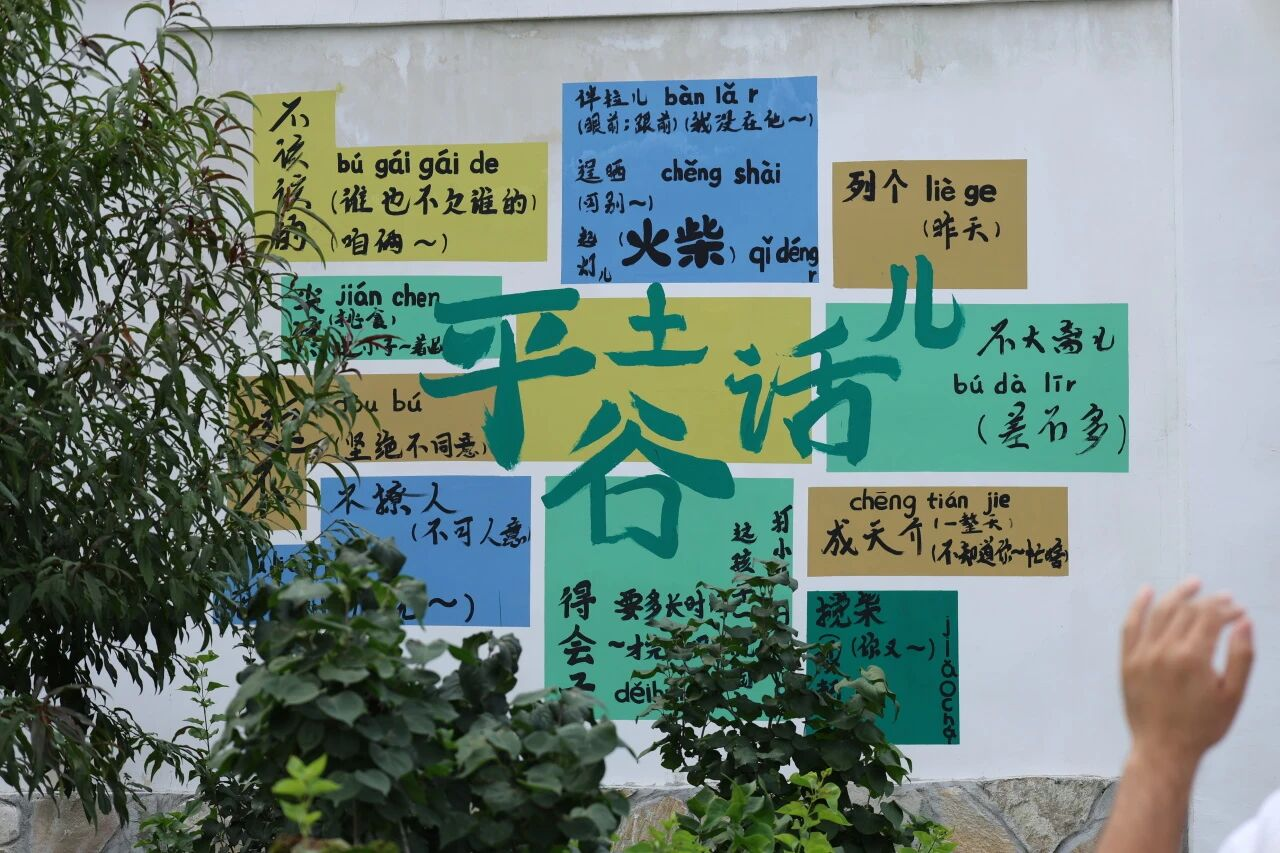 不该该的
bú gái gái de
(谁也不欠谁的)
(咱俩~)
伴拉儿 bàn lǎ r
(眼前;跟前)(我没在他~)
逞晒 chěng shài
(可别~)
起灯儿 (火柴) qǐ déng r
列个 liè ge
(昨天)
jián chen
(挑食)
小子~着
平谷土话儿
bú dà līr
(差不多)
不大离儿
bú
(坚绝不同意)
不撩人
(不可人意)
~)
chēng tián jie
成天介 (一整天)
(不知道你~忙啥)
打小
这孩
得会子
要多长时
~才
děi
搅柴
(你又~)
jiǎo chai